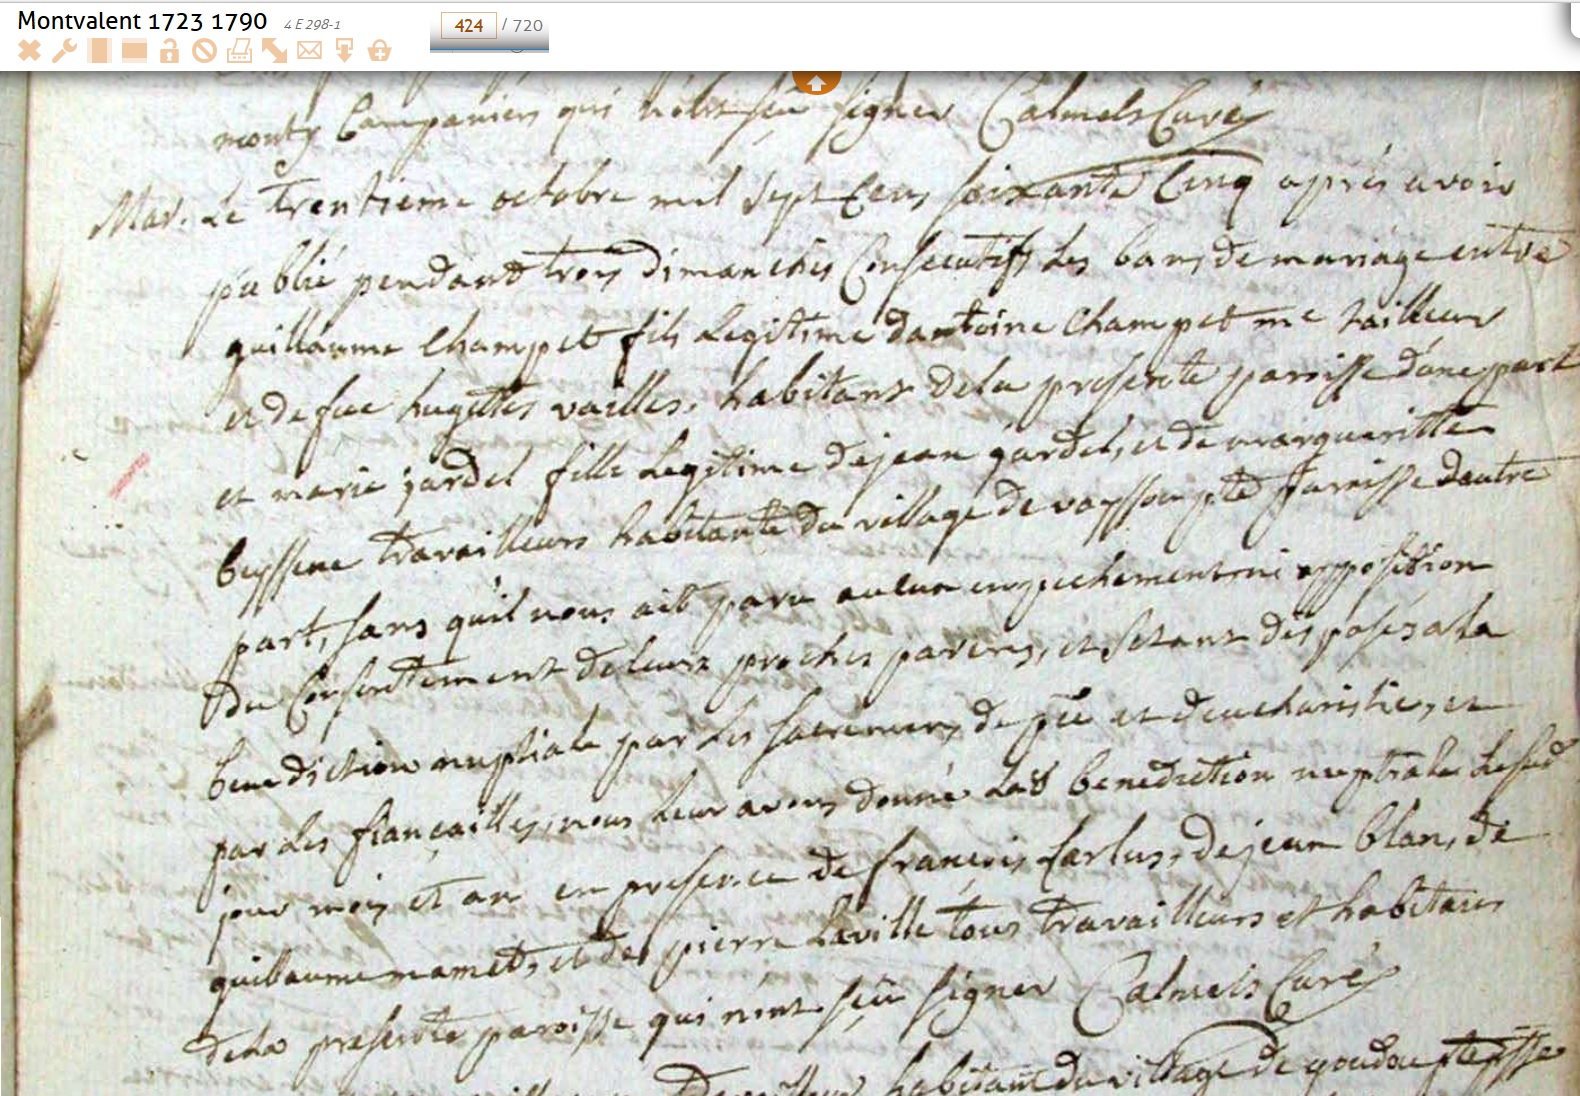 Montvalent 1723 1790 4 E 298-1 424 / 720
Campaniers qui n'ont sçu signer Calmels Curé
Mar. Le trentieme octobre mil sept cens soixante cinq après avoir
publié pendant trois dimanches consecutifs les bans de mariage entre
guillaume champet fils legitime dantoine champet me tailleur
et de fue hugette vailles, habitans dela presente parroisse d'une part
et marie jardel fille legitime de jean jardel, et de margueritte
beyssene travailleurs habitante du village de vayssou pte parroisse dautre
part, sans quil nous ait paru aucun empechement ni opposition
du consentement de leurs proches parens, et setant disposés a la
benediction nuptiale par les sacremens de pce et deucharistie, et
par les fiançailles, nous leur avons donné la benediction nuptiale lesud
jour mois et an en presence de francois carlus, de jean blan, de
guillaume mamet, et de pierre laville tous travailleurs et habitans
dela presente paroisse qui n'ont sçu signer Calmels Curé
habitant du village de goudou